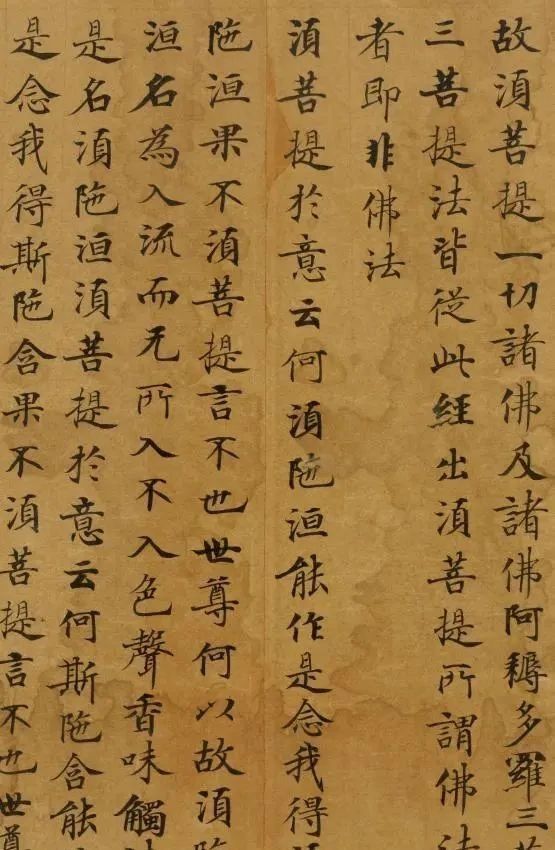 故湏菩提一切諸佛及諸佛阿耨多羅三
三菩提法皆從此經出湏菩提所謂佛法
者即非佛法
湏菩提於意云何湏陁洹能作是念我得
陁洹果不湏菩提言不也世尊何以故湏陁
洹名為入流而无所入不入色聲香味觸
是名湏陁洹湏菩提於意云何斯陁含能
是念我得斯陁含果不湏菩提言不也世尊